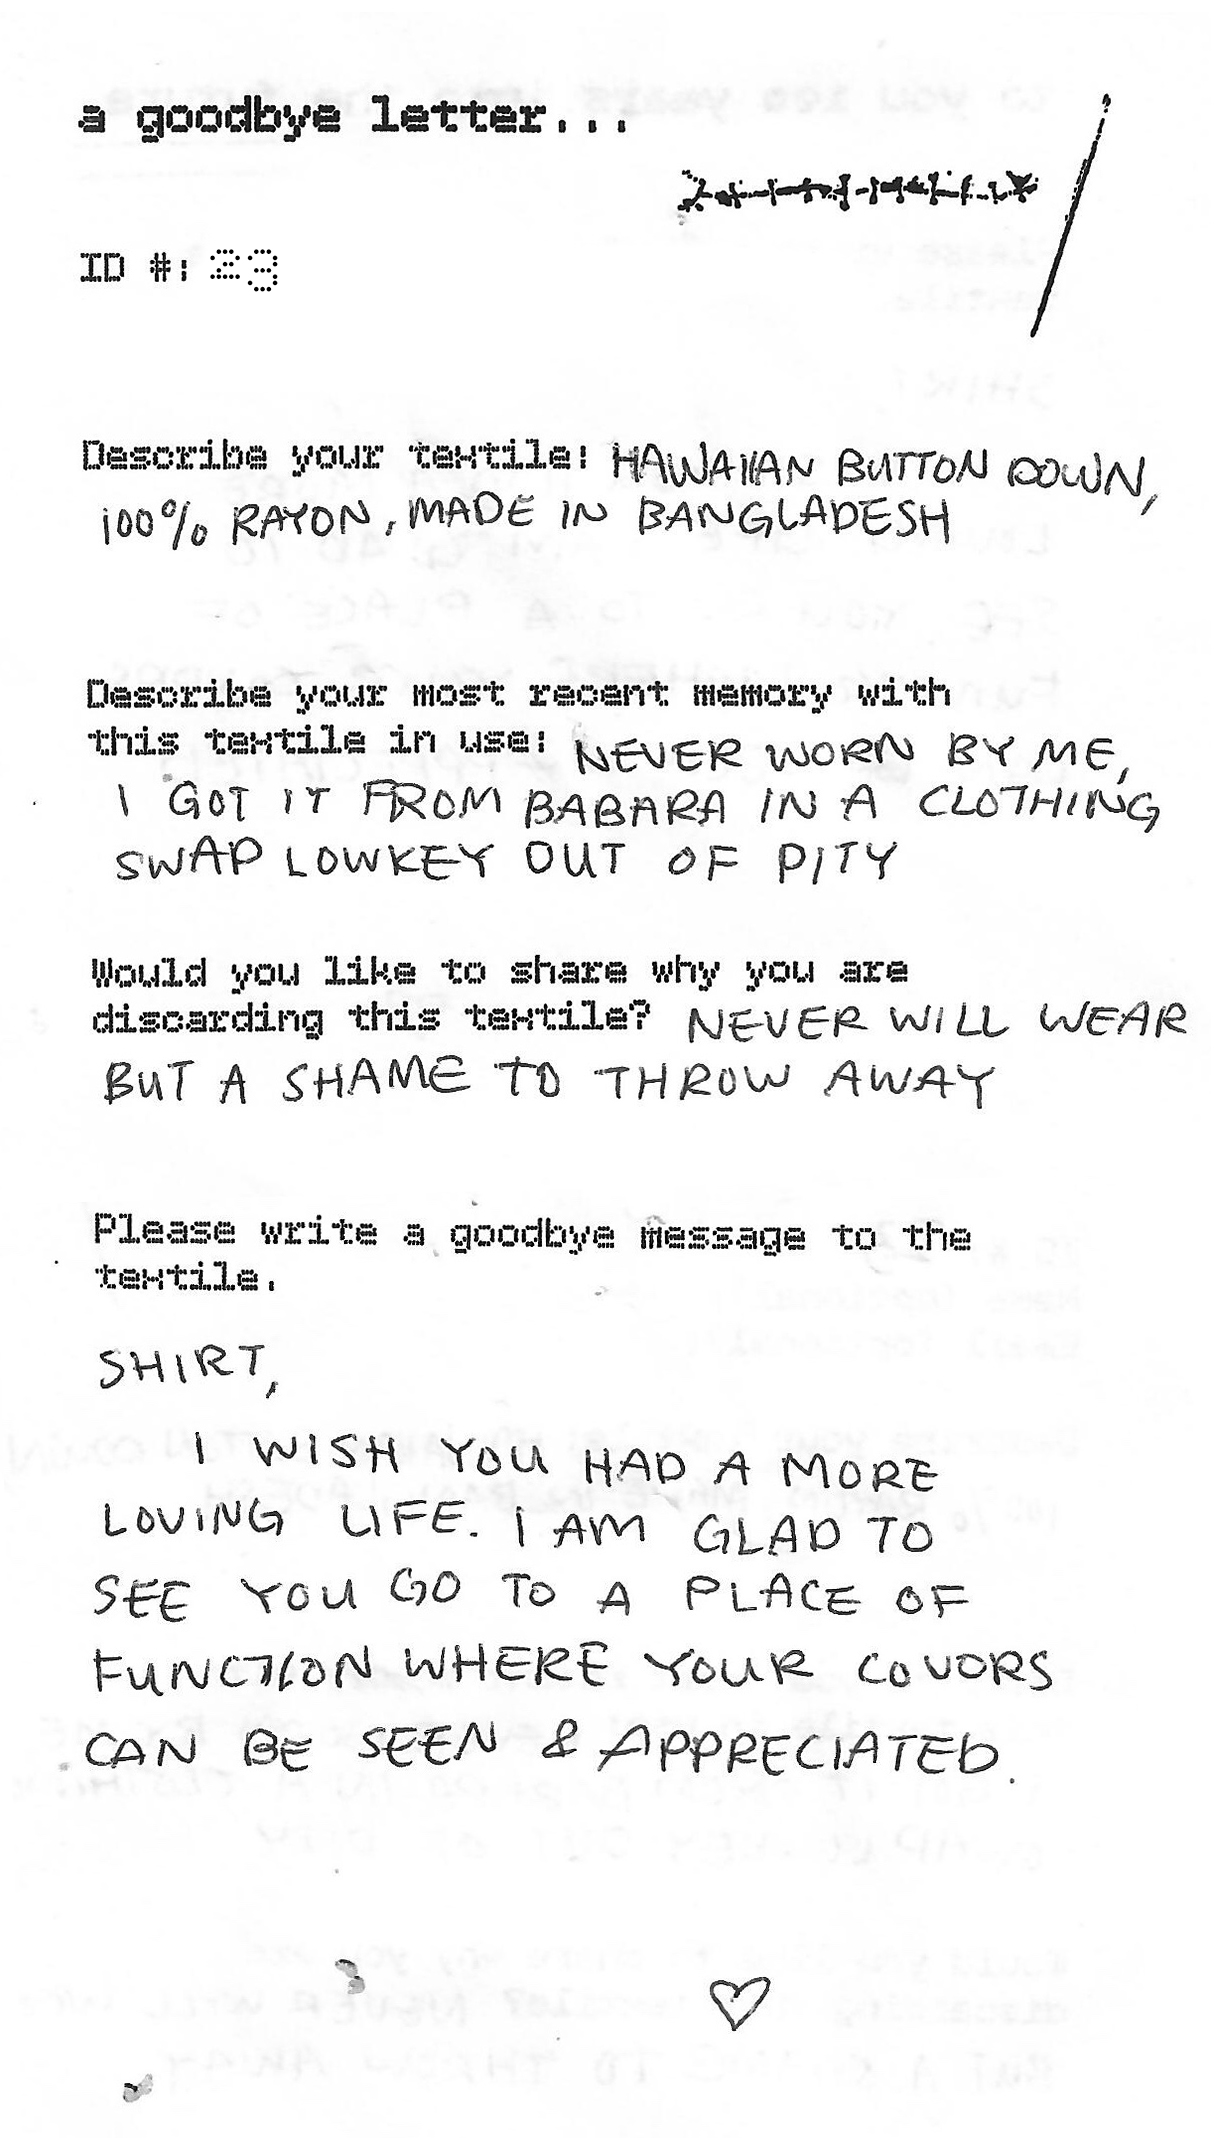 a goodbye letter...
ID #: 23
Describe your textile: HAWAIIAN BUTTON DOWN,
100% RAYON, MADE IN BANGLADESH
Describe your most recent memory with
this textile in use: NEVER WORN BY ME,
I GOT IT FROM BABARA IN A CLOTHING
SWAP LOWKEY OUT OF PITY
Would you like to share why you are
discarding this textile? NEVER WILL WEAR
BUT A SHAME TO THROW AWAY
Please write a goodbye message to the
textile.
SHIRT,
I WISH YOU HAD A MORE
LOVING LIFE. I AM GLAD TO
SEE YOU GO TO A PLACE OF
FUNCTION WHERE YOUR COLORS
CAN BE SEEN & APPRECIATED.